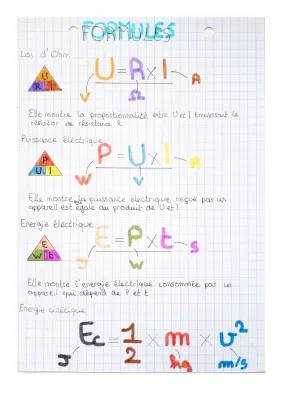 FORMULES
Loi d'Ohm
U
R I
U = R x I
A
V
Ω
Elle montre la proportionnalité entre U et I traversant le
résistor de résistance R.
Puissance électrique
P
U I
P = U x I
A
W
V
Elle montre la puissance électrique reçue par un
appareil est égale au produit de U et I
Energie électrique
E
W t
E = P x t
s
J
W
Elle montre l'énergie électrique consommée par un
appareil qui dépend de P et t
Energie cinétique
Ec = 1/2 x m x v²
J
kg
m/s